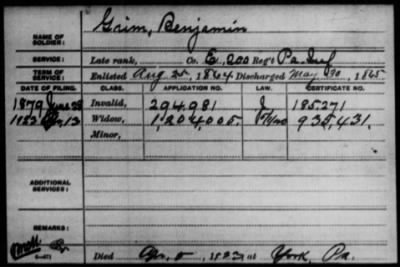 NAME OF SOLDIER: Grim, Benjamin
SERVICE: Late rank, Co. E, 200 Reg't Pa. Inf
TERM OF SERVICE: Enlisted Aug 25, 1864 Discharged May 30, 1865.
DATE OF FILING. CLASS. APPLICATION NO. LAW. CERTIFICATE NO.
1879 June 28 Invalid, 294,981 185,271
1923 13 Widow, 1,204,005. 935,431.
Minor,
ADDITIONAL SERVICES:
REMARKS:
Died 1923 at York, Pa.